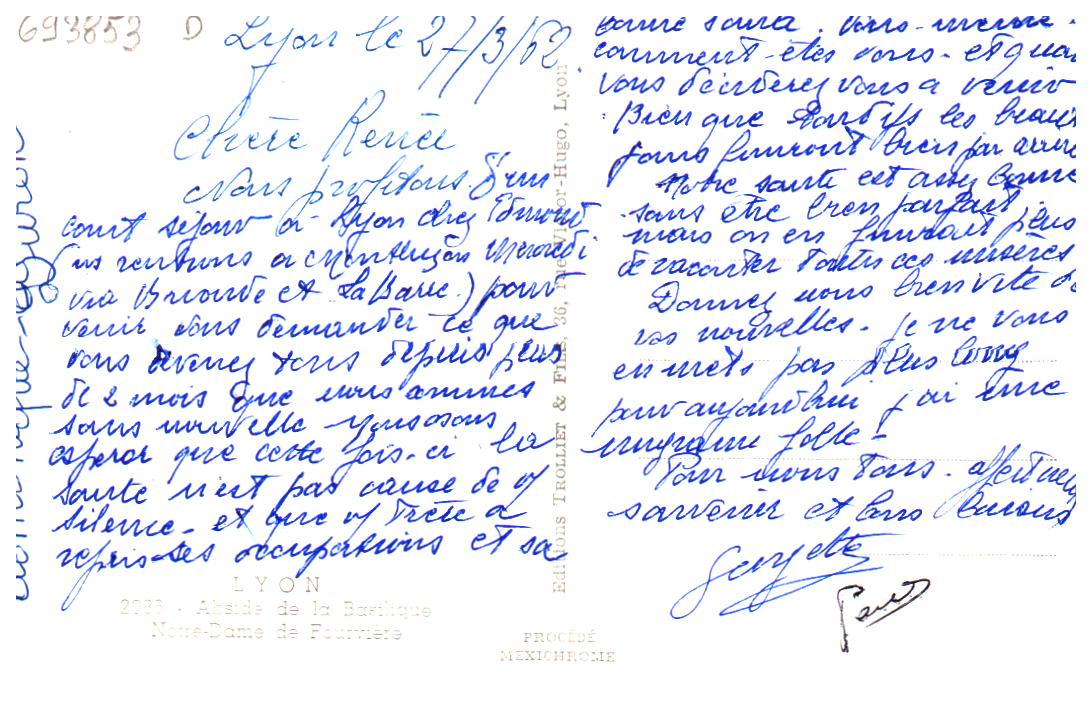 693853 D
Lyon le 27/3/62.
Chère Renée
Nous profitons d'un
court séjour à Lyon chez Edmond
(ns rentrons à Montluçon
via Brioude et La Barre) pour
venir vous demander ce que
vous devenez tous depuis plus
de 2 mois que nous sommes
sans nouvelle nous osons
espérer que cette fois-ci la
santé n'est pas cause de vs
silence - et que vs frère a
repris ses occupations et sa
bonne santé. Vous-même.
comment-êtes vous - et quand
vous déciderez vous à venir
Bien que tardifs les beaux
jours finiront bien par arriver
Notre santé est assez bonne
sans être bien parfait
mais on en finirait plus
de raconter toutes ces misères
Donnez nous bien vite de
vos nouvelles. je ne vous
en mets pas plus long
pour aujourd'hui j'ai une
migraine folle -
Pour vous tous. affectueux
souvenir et bons baisers
Georgette
Editions TROLLIET & FILS, 36, rue Victor-Hugo, Lyon
LYON
Abside de la Basilique
Notre-Dame de Fourvière
PROCÉDÉ
MEXICHROME